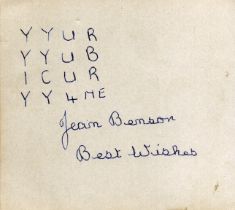 Y Y U R
Y Y U B
I C U R
Y Y 4 ME
Jean Benson
Best Wishes